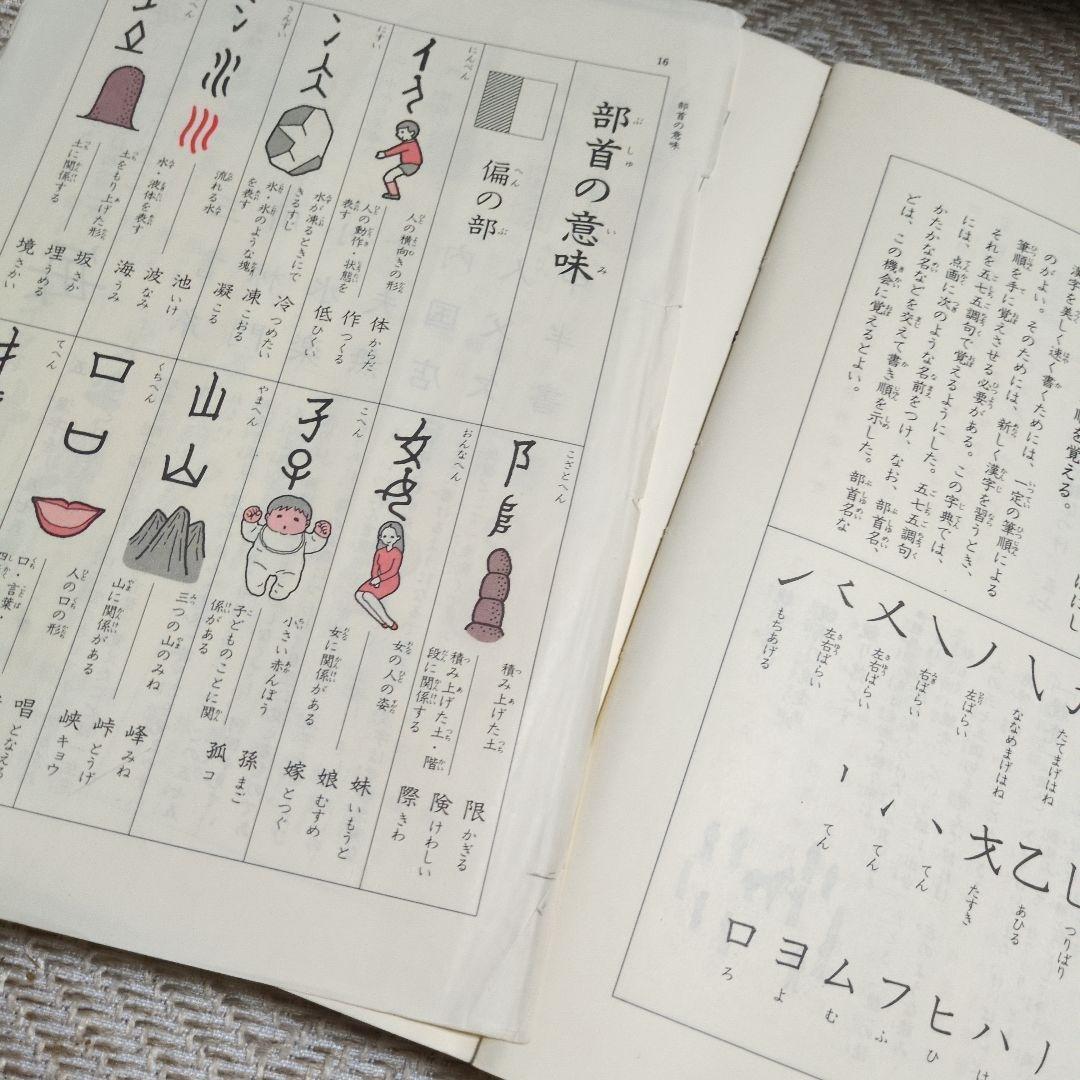 16
部首の意味
部首の意味
偏の部
にんべん
イ
人の横向きの形
人の動作・状態を
表す
体 からだ
作 つくる
低 ひくい
にすい
冫
水が凍るときにで
きるすじ
氷・氷のような塊
を表す
冷 つめたい
凍 こおる
凝 こる
さんずい
流れる水
水・液体を表す
池 いけ
波 なみ
海 うみ
土をもり上げた形
土に関係する
坂 さか
埋 うめる
境 さかい
こざとへん
阝
積み上げた土
積み上げた土・階
段に関係する
限 かぎる
険 けわしい
際 きわ
おんなへん
女
女の人の姿
女に関係がある
妹 いもうと
娘 むすめ
嫁 とつぐ
こへん
子
小さい赤んぼう
子どものことに関
係がある
孫 まご
孤 コ
やまへん
山
三つの山のみね
山に関係がある
峰 みね
峠 とうげ
峡 キョウ
くちへん
口
人の口の形
口・言葉・
唱 となえる
てへん
順を覚える。
漢字を美しく速く書くためには、
のがよい。そのためには、一定の筆順による
筆順を手に覚えさせる必要がある。
それを五七五調句で覚えるようにした。この字典では、
には、点画に次のような名前をつけ、なお、部首名、
かたかな名などを交えて書き順を示した。部首名な
どは、この機会に覚えるとよい。
たてまげはね
ななめまげはね
ノ 左ばらい
右ばらい
左右ばらい
く 左右ばらい
もちあげる
つりばり
乙 あひる
たすき
てん
てん
てん
ハ は
ヒ ひ
フ ふ
ム む
ヨ よ
ロ ろ